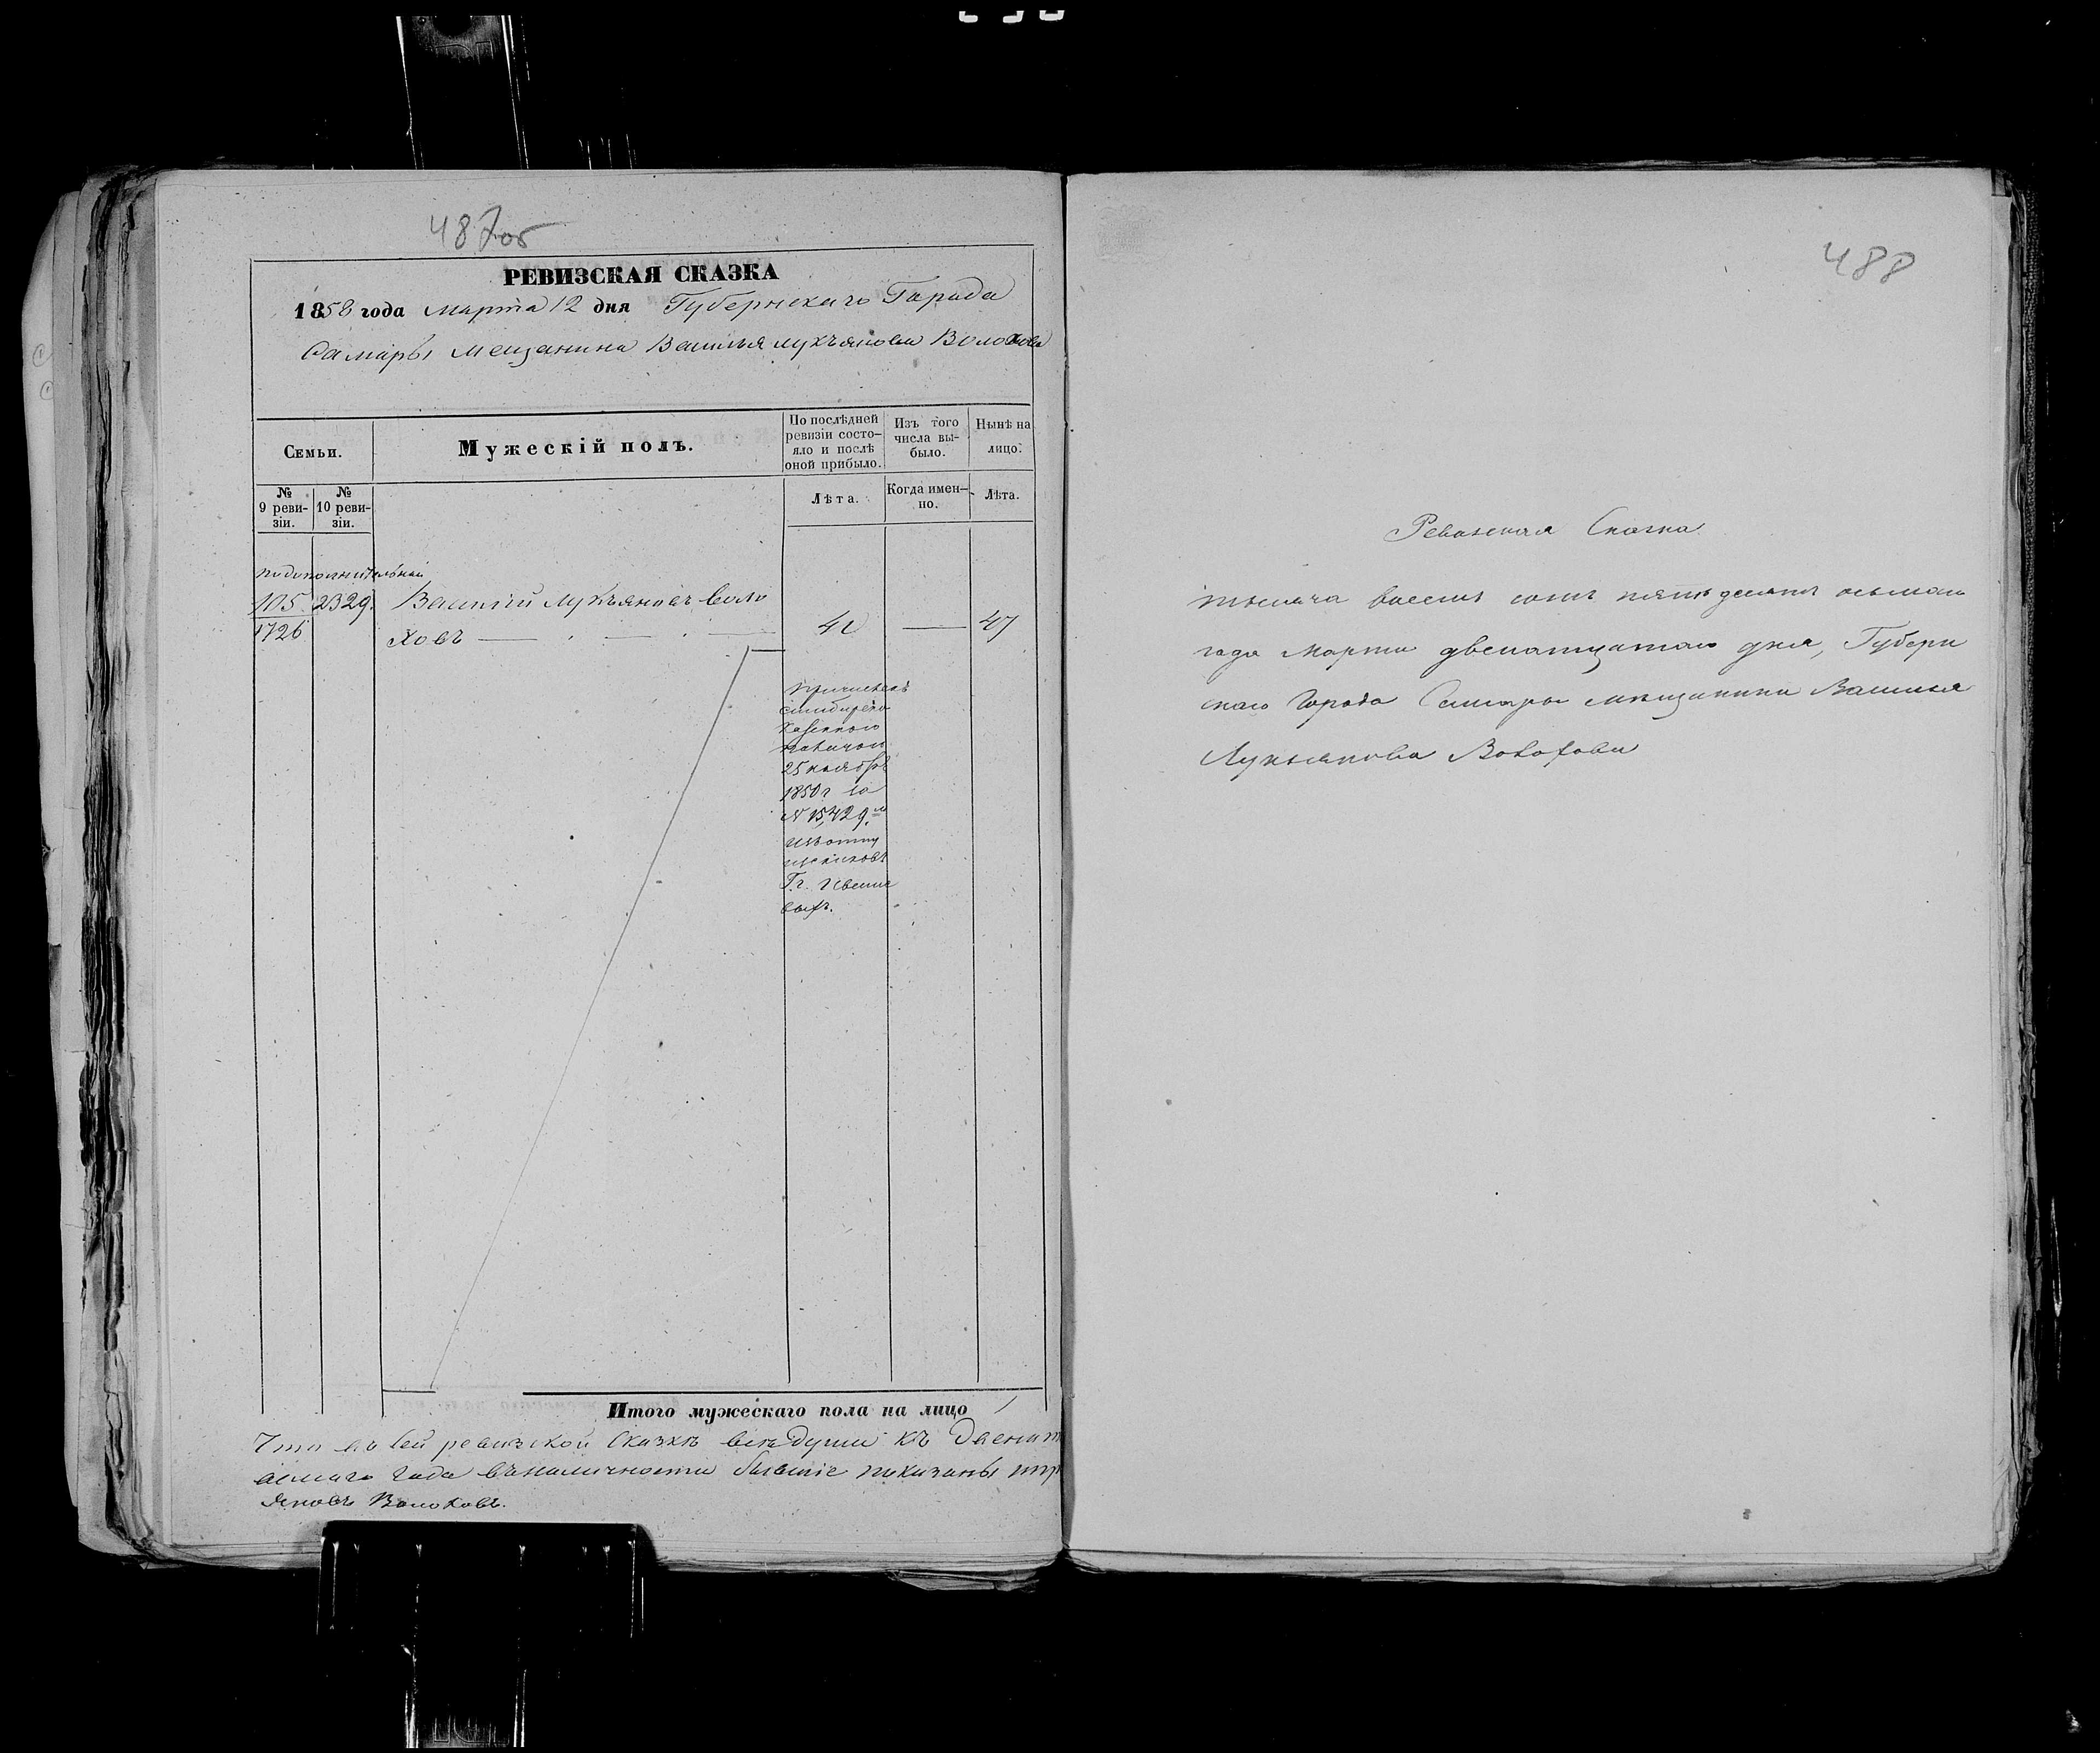 487об
РЕВИЗСКАЯ СКАЗКА
1858 года марта 12 дня Губернскаго Города
Самары мещанина Василья лукъянова Волохова
Семьи.
Мужескій полъ.
По послѣдней ревизіи состо-
яло и послѣ
оной прибыло.
Изъ того
числа вы-
было.
Нынѣ на
лицо.
№
9 реви-
зіи.
№
10 реви-
зіи.
Лѣта.
Когда имен-
но.
Лѣта.
подополнительной
105 2329. Василій Лукъяновъ Воло
1726
ховъ
47
Причисленъ
Казенною
25 ноября
1850 г за
№ 15,429.
Гг.
выхъ.
Итого мужескаго пола на лицо 1
Что въ сей ревизской Сказкѣ всѣ души къ
года въналичности бывшіе показаны
яновъ Волоховъ.
488
Ревизская Сказка
тысяча восемь сотъ пятьдесятъ осьмаго
года Марта двенатцатаго дня, Губерн
скаго Города Самары мещанина Василья
Лукьянова Волохова